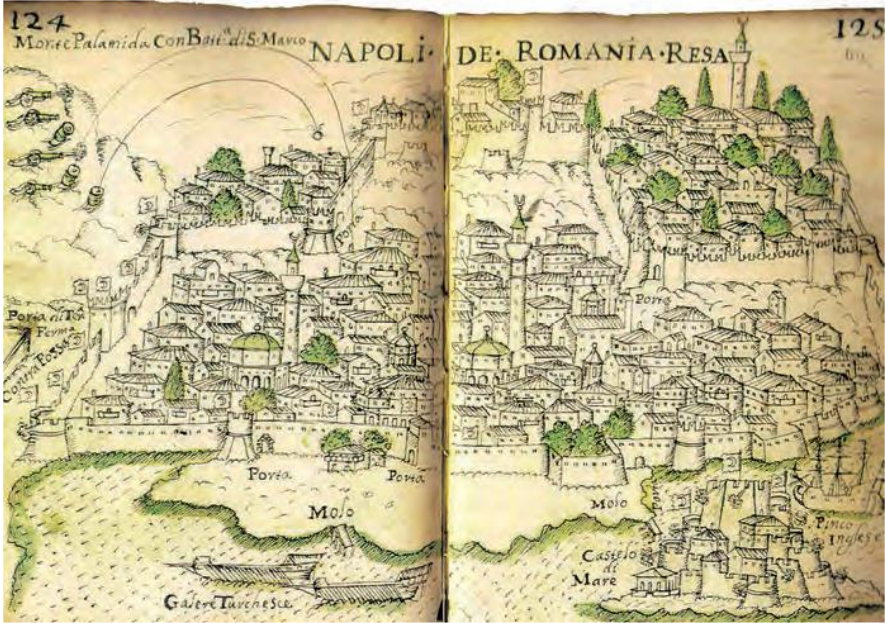 124
Monte Palamida Con Batt.ª di S. Marco
NAPOLI · DE · ROMANIA · RESA
125
Porta
Porta di Tera
Ferma
Contra Fossa
Porta
Porta
Porta
Molo
Molo
Porta
Castelo
di
Mare
Pinco
Inglese
Galere Turchesce